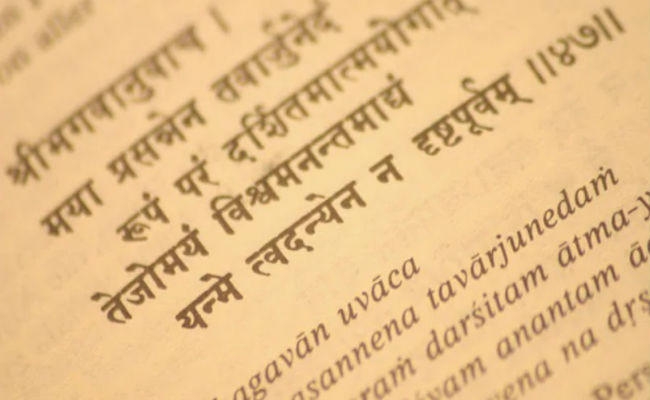 on aller
श्रीभगवानुवाच ।
मया प्रसन्नेन तवार्जुनेदं
रूपं परं दर्शितमात्मयोगात्
तेजोमयं विश्वमनन्तमाद्यं
यन्मे त्वदन्येन न दृष्टपूर्वम् ॥४७॥
agavān uvāca
asannena tavārjunedaṁ
raṁ darśitam ātma-y
vam anantam ā
yena na dṛṣ
Pers